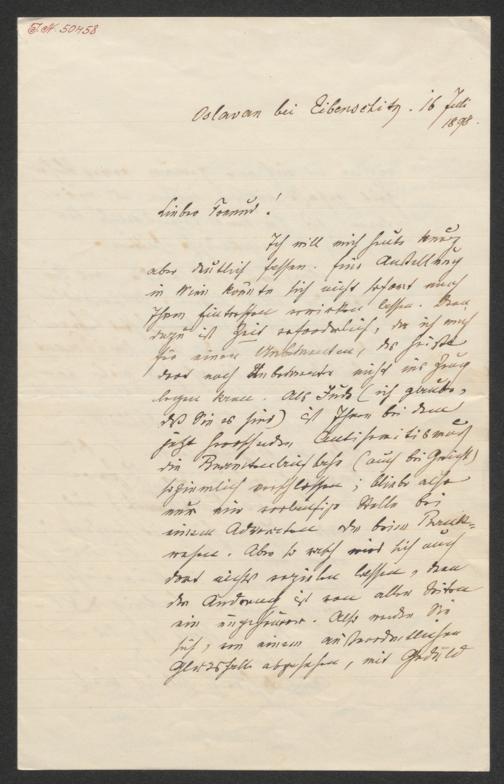 J. N. 50458
Oslavan bei Eibenschitz. 16 Juli
1898.
Lieber Freund!
Ich will mich heute kurz
aber deutlich fassen. Eine Anstellung
in Wien könnte sich nicht sofort nach
Ihrem Eintreffen erwirken lassen. Denn
dazu ist Zeit erforderlich, da ich mich
für einen Unbekannten, das heißt
dort noch Unbekannten nicht ins Zeug
legen kann. Als Jude (ich glaube,
daß Sie es sind) ist Ihnen bei dem
jetzt herrschenden Antisemitismus
die Beamtenlaufbahn (auch bei Gericht)
so ziemlich verschlossen; bliebe also
nur eine vorläufige Stelle bei
einem Advocaten oder beim Bank-
wesen. Aber so rasch wird sich auch
dort nichts erzielen lassen, denn
der Andrang ist von allen Seiten
ein ungeheurer. Also werden Sie
sich, von einem außerordentlichen
Glücksfalle abgesehen, mit Geduld